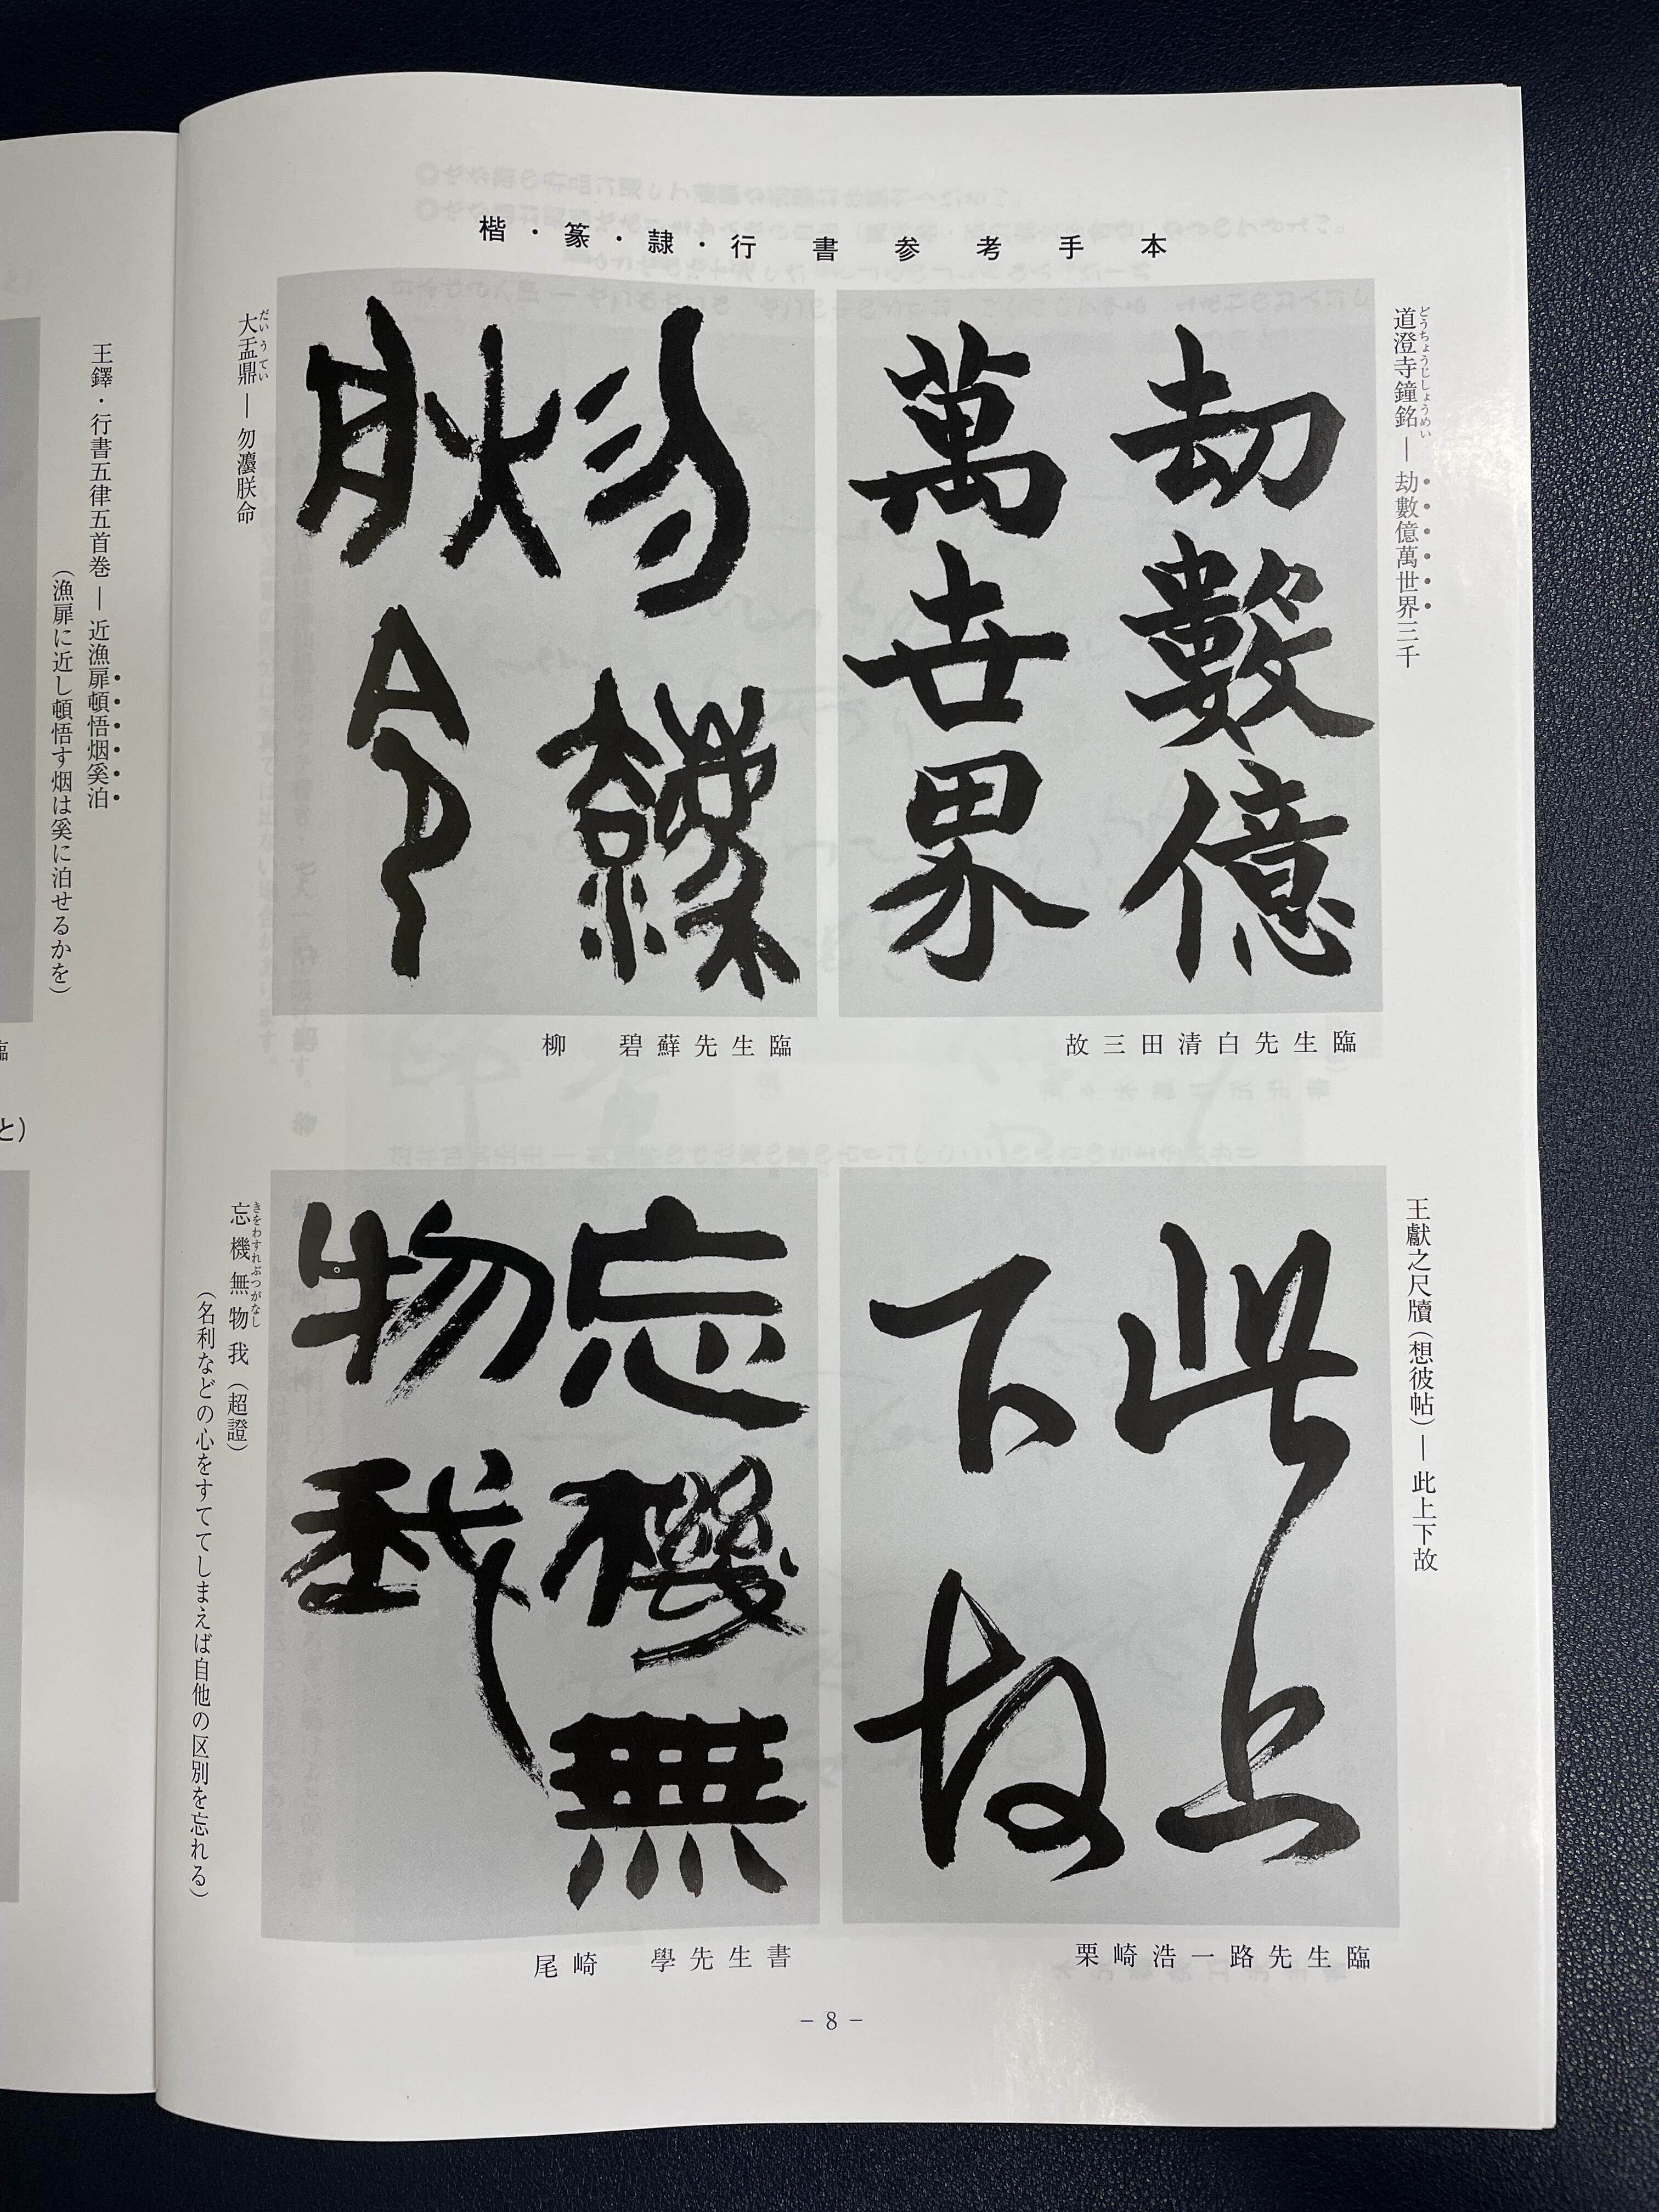 楷・篆・隷・行書参考手本
道澄寺鐘銘 ― 劫數億萬世界三千
どうちょうじしょうめい
劫數億
萬世界
故三田清白先生臨
大盂鼎 ― 勿灋朕命
だいうてい
勿灋
朕命
柳 碧蘚先生臨
王獻之尺牘(想彼帖) ― 此上下故
此上
下故
栗崎浩一路先生臨
忘機無物我(超證)
きをわすれぶつがなし
(名利などの心をすててしまえば自他の区別を忘れる)
忘機無
物我
尾崎 學先生書
－8－
王鐸・行書五律五首巻 ― 近漁扉頓悟烟奚泊
(漁扉に近し頓悟す烟は奚に泊せるかを)
臨
と)